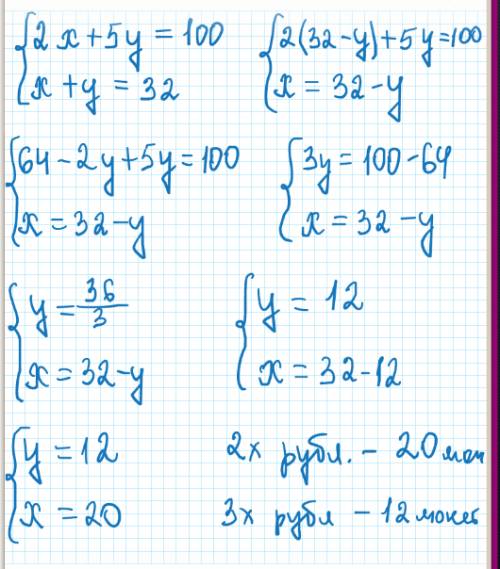 {2x+5y=100
{x+y=32
{2(32-y)+5y=100
{x=32-y
{64-2y+5y=100
{x=32-y
{3y=100-64
{x=32-y
{y=36/3
{x=32-y
{y=12
{x=32-12
{y=12
{x=20
2х рубл. - 20 мон
3х рубл - 12 монет